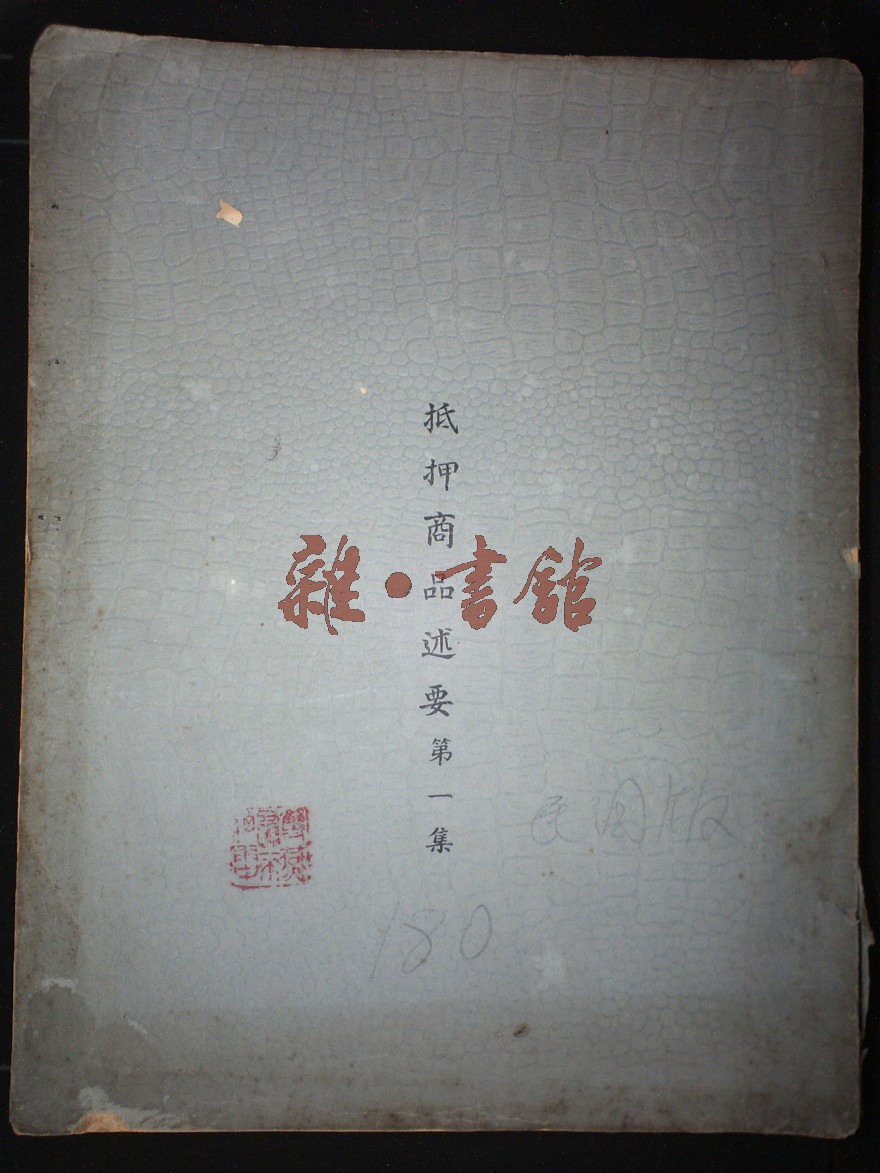 抵押商品述要第一集
雜·書館
民国版
180